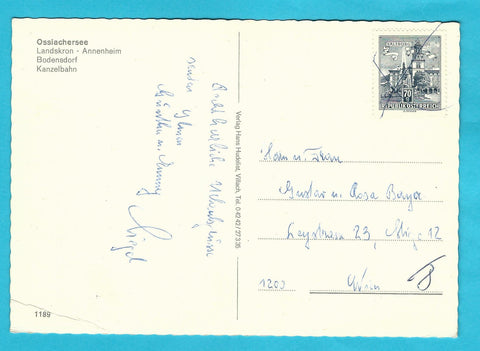 Ossiachersee
Landskron - Annenheim
Bodensdorf
Kanzelbahn
Recht herzliche Urlaubsgrüsse
senden Ihnen
Verlag Hans Hudelist, Villach, Tel. 0 42 42 / 27 3 35
SALZBURG
70
REPUBLIK ÖSTERREICH
Herrn u. Frau
Gustav u. Rosa Berger
23, Stiege 12
1200 Wien
1189